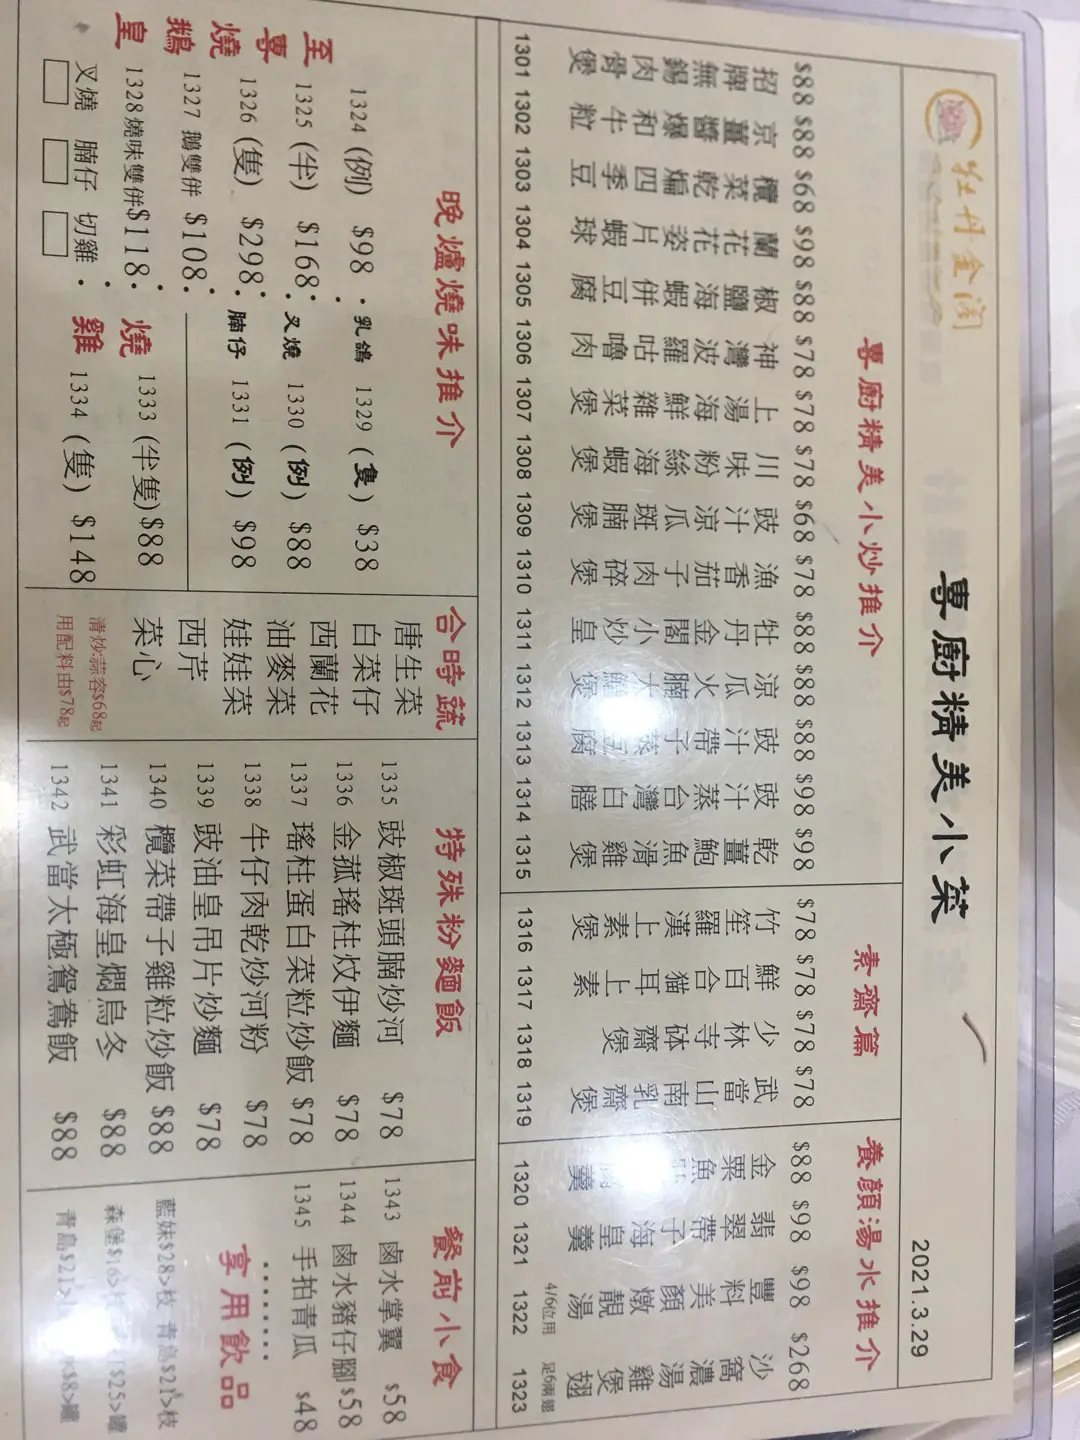 牡丹金閣
專廚精美小菜
2021.3.29
專廚精美小炒推介
$88 招牌無錫肉骨煲 1301
$88 京薑醬爆和牛粒 1302
$68 欖菜乾煸四季豆 1303
$98 蘭花花姿片蝦球 1304
$88 椒鹽海蝦併豆腐 1305
$78 神灣波羅咕嚕肉 1306
$78 上湯海鮮雜菜煲 1307
$78 川味粉絲海蝦煲 1308
$68 豉汁涼瓜斑腩煲 1309
$78 漁香茄子肉碎煲 1310
$88 牡丹金閣小炒皇 1311
$88 涼瓜火腩大鱔煲 1312
$88 豉汁帶子蒸豆腐 1313
$98 豉汁蒸台灣白膳 1314
$98 乾薑鮑魚滑雞煲 1315
素齋篇
$78 竹笙羅漢上素煲 1316
$78 鮮百合猫耳上素 1317
$78 少林寺砵齋煲 1318
$78 武當山南乳齋煲 1319
養顏湯水推介
$88 金粟魚羹 1320
$98 翡翠帶子海皇羹 1321
$98 豐料美顏燉靚湯 4/6位用 1322
$268 沙窩濃湯雞煲翅 足6兩翅 1323
晚爐燒味推介
至尊燒鵝皇
1324 (例) $98
1325 (半) $168
1326 (隻) $298
1327 鵝雙併 $108
1328 燒味雙併 $118
叉燒 腩仔 切雞
乳鴿 1329 (隻) $38
叉燒 1330 (例) $88
腩仔 1331 (例) $98
燒雞
1333 (半隻) $88
1334 (隻) $148
合時蔬
唐生菜
白菜仔
西蘭花
油麥菜
娃娃菜
西芹
菜心
清炒.蒜容$68起
用配料由$78起
特殊粉麵飯
1335 豉椒斑頭腩炒河 $78
1336 金菰瑤柱炆伊麵 $78
1337 瑤柱蛋白菜粒炒飯 $78
1338 牛仔肉乾炒河粉 $78
1339 豉油皇吊片炒麵 $78
1340 欖菜帶子雞粒炒飯 $88
1341 彩虹海皇燜烏冬 $88
1342 武當太極鴛鴦飯 $88
餐前小食
1343 鹵水掌翼 $58
1344 鹵水豬仔腳 $58
1345 手拍青瓜 $48
享用飲品
藍妹$28>枝 青島$21>枝
森堡$16> $25>罐
青島$21> $8>罐